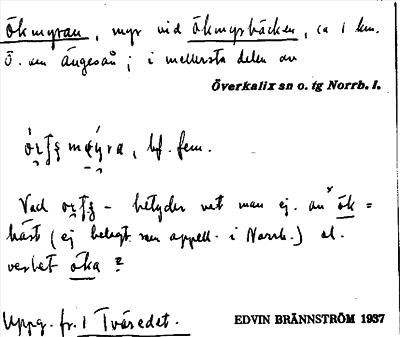 Ökmyran, myr vid Ökmyrbäcken, ca 1 km.
Ö. om Ängesån; i mellersta delen av
Överkalix sn o. tg Norrb. l.
bf. fem.
Vad – betyder vet man ej. an ök =
häst (ej belagt som appell. i Norrb.) el.
verbet öka?
Uppg. fr. 1 Tväredet.
EDVIN BRÄNNSTRÖM 1937